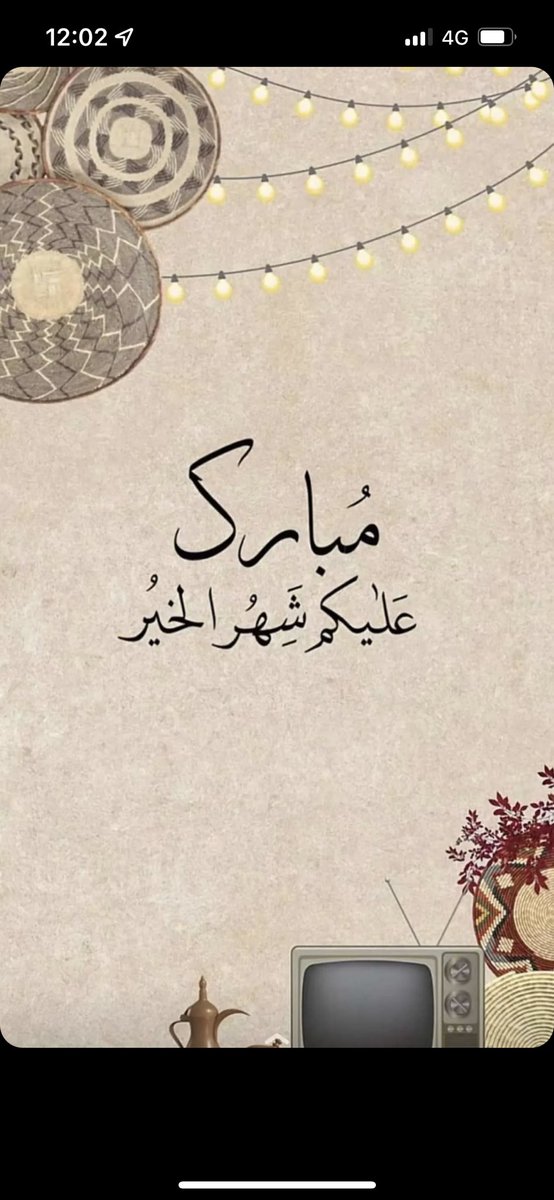 12:02
4G
مُبارك
عَلٰيكم شَهُر الخيُر